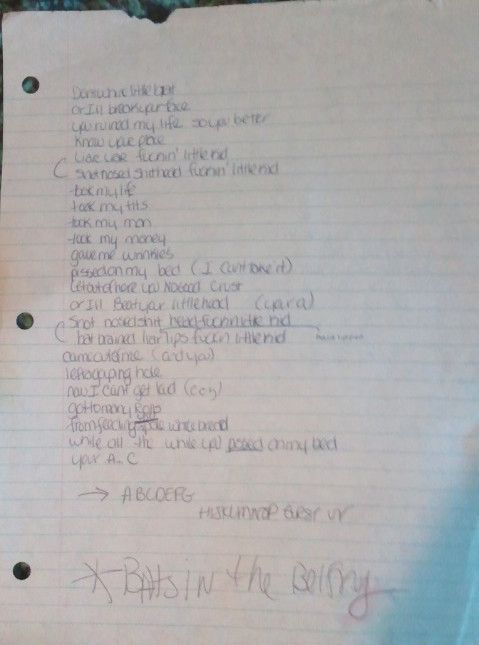 Dont whine little brat
or Ill break your face
you ruined my life so you better
know your place
fuckin' little kid
Snot nosed shit head fuckin' little kid
took my life
took my tits
took my man
took my money
gave me wrinkles
pissed on my bed (I cant take it)
Let outa here you No Good Crust
or Ill Beat your little head (your a)
Snot nosed shit head fuckin little kid
hat brained liar lips fuckin little kid
came outa me (and you)
left a gaping hole
now I cant get laid (coz)
got to many
from feeding white bread
while all the while you pissed on my bed
your A.. C
→ ABCDEFG
HIJKLMNOP QRST UV
* BAts iN the Belfry